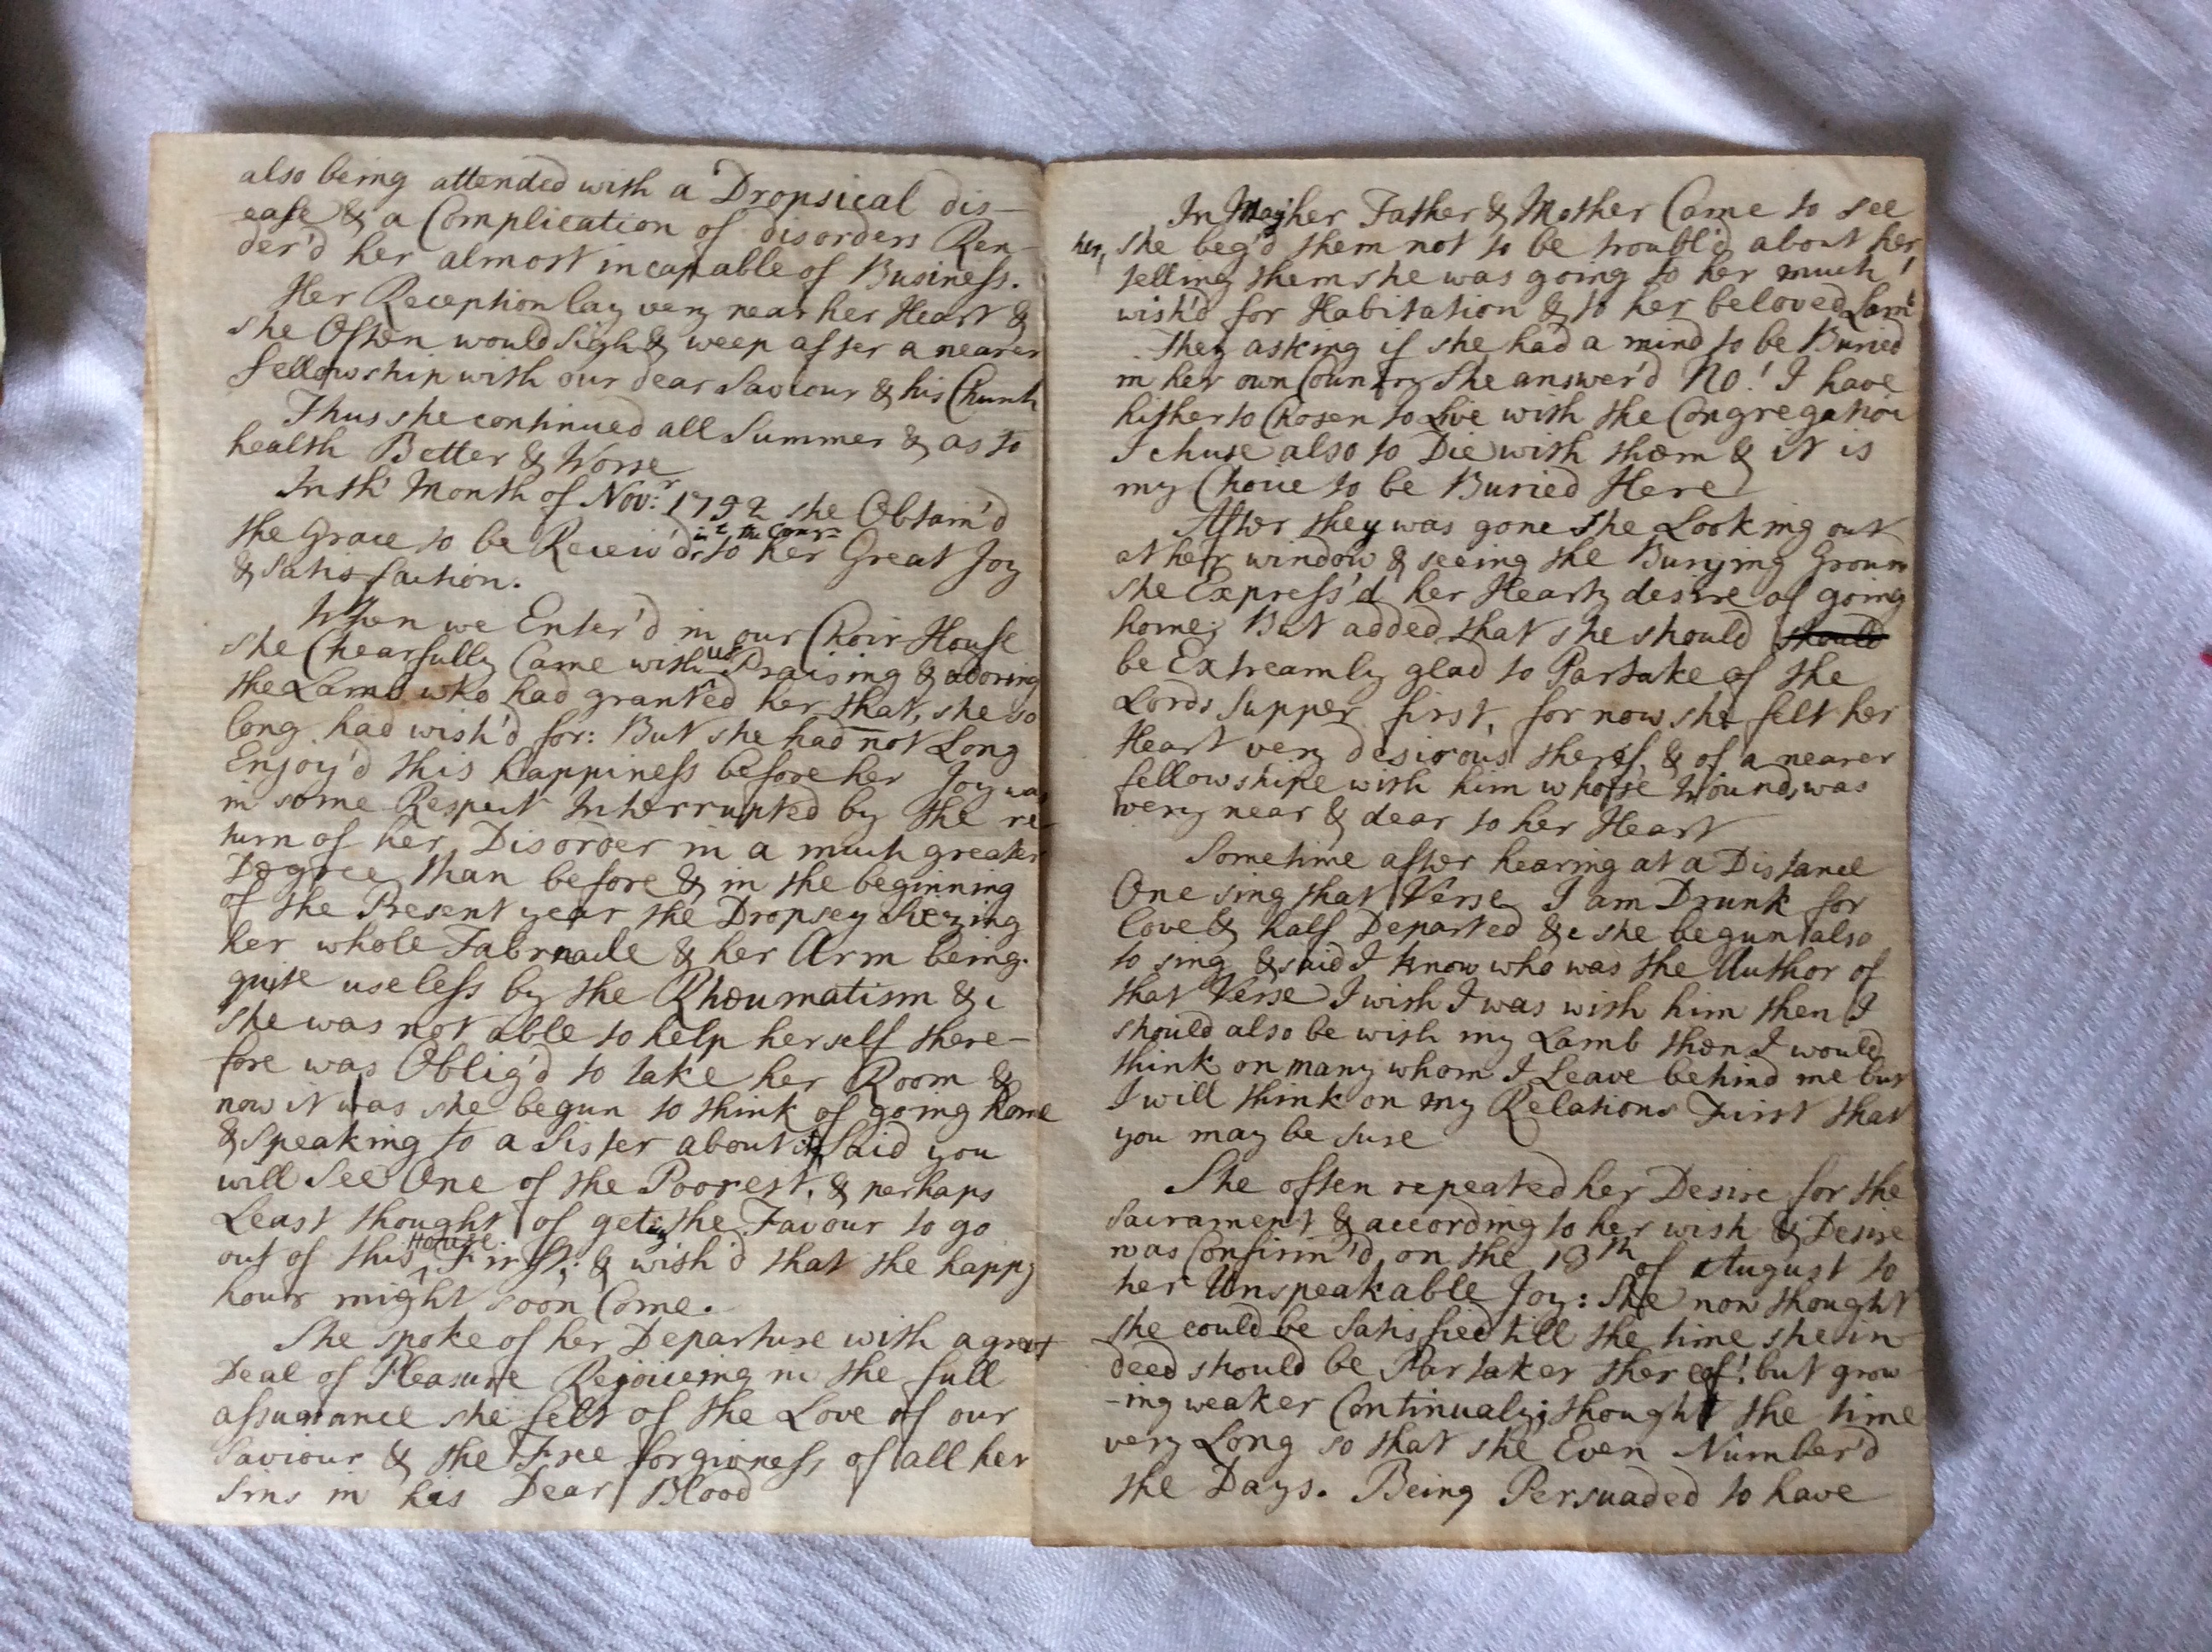 also being attended with a Dropsical dis-
ease & a Complication of disorders Ren-
der'd her almost incapable of Business.
Her Reception lay very near her Heart &
she Often would Sigh & weep after a nearer
fellowship with our dear Saviour & his Church
Thus she continued all Summer & as to
health Better & Worse
In th' Month of Nov:r 1752 she Obtain'd
the Grace to be Receiv'd to her Great Joy
& Satisfaction.
When we Enter'd in our Choir House
she Chearfully Came with us Praising & adoring
the Lamb who had granted her that, she so
long had wish'd for: But she had not Long
Enjoy'd this happiness before her Joy was
in some Respect Interrupted by the re
turn of her Disorder in a much greater
Degree than before & in the beginning
of the Present year the Dropsey Siezing
her whole Tabrnacle & her Arm being
quite useless by the Rheumatism &c
she was not able to help herself there-
fore was Oblig'd to take her Room &
now it was she begun to think of going home
& speaking to a Sister about it Said you
will See One of the Poorest, & perhaps
Least thought of geting the Favour to go
out of this House First; & wish'd that the happy
hour might soon Come.
She spoke of her Departure with a great
Deal of Pleasure Rejoiceing in the full
assurance she felt of the Love of our
Saviour & the Free forgivness of all her
Sins in his Dear Blood
In May her Father & Mother Came to see
her, she beg'd them not to be troubl'd about her,
telling them she was going to her much
wish'd for Habitation & to her beloved Lamb
They asking if she had a mind to be Buried
in her own Country She answer'd No! I have
hitherto Chosen to Live with the Congregation
I chuse also to Die with them & it is
my Choice to be Buried Here
After they was gone she Looking out
at her window & seeing the Burying Ground
she Express'd her Hearty desire of going
home; But added that she should should
be Extreamly glad to Partake of the
Lords Supper first, for now she felt her
Heart very desirous therof, & of a nearer
fellowshipe with him whose Wounds was
very near & dear to her Heart
Sometime after hearing at a Distance
One sing that Verse I am Drunk for
love & half Departed &c she begun also
to sing & said I know who was the Author of
that Verse I wish I was with him then I
should also be with my Lamb then I would
think on many whom I Leave behind me but
I will think on my Relations First that
you may be sure
She often repeated her Desire for the
Sacrament & according to her wish & Desire
was Confirm'd on the 18th of August to
her Unspeakable Joy: She now thought
she could be Satisfied till the time she in
deed should be Partaker therof! but grow
-ing weaker Continualy; thought the time
very Long so that she Even Number'd
the Days. Being Persuaded to have